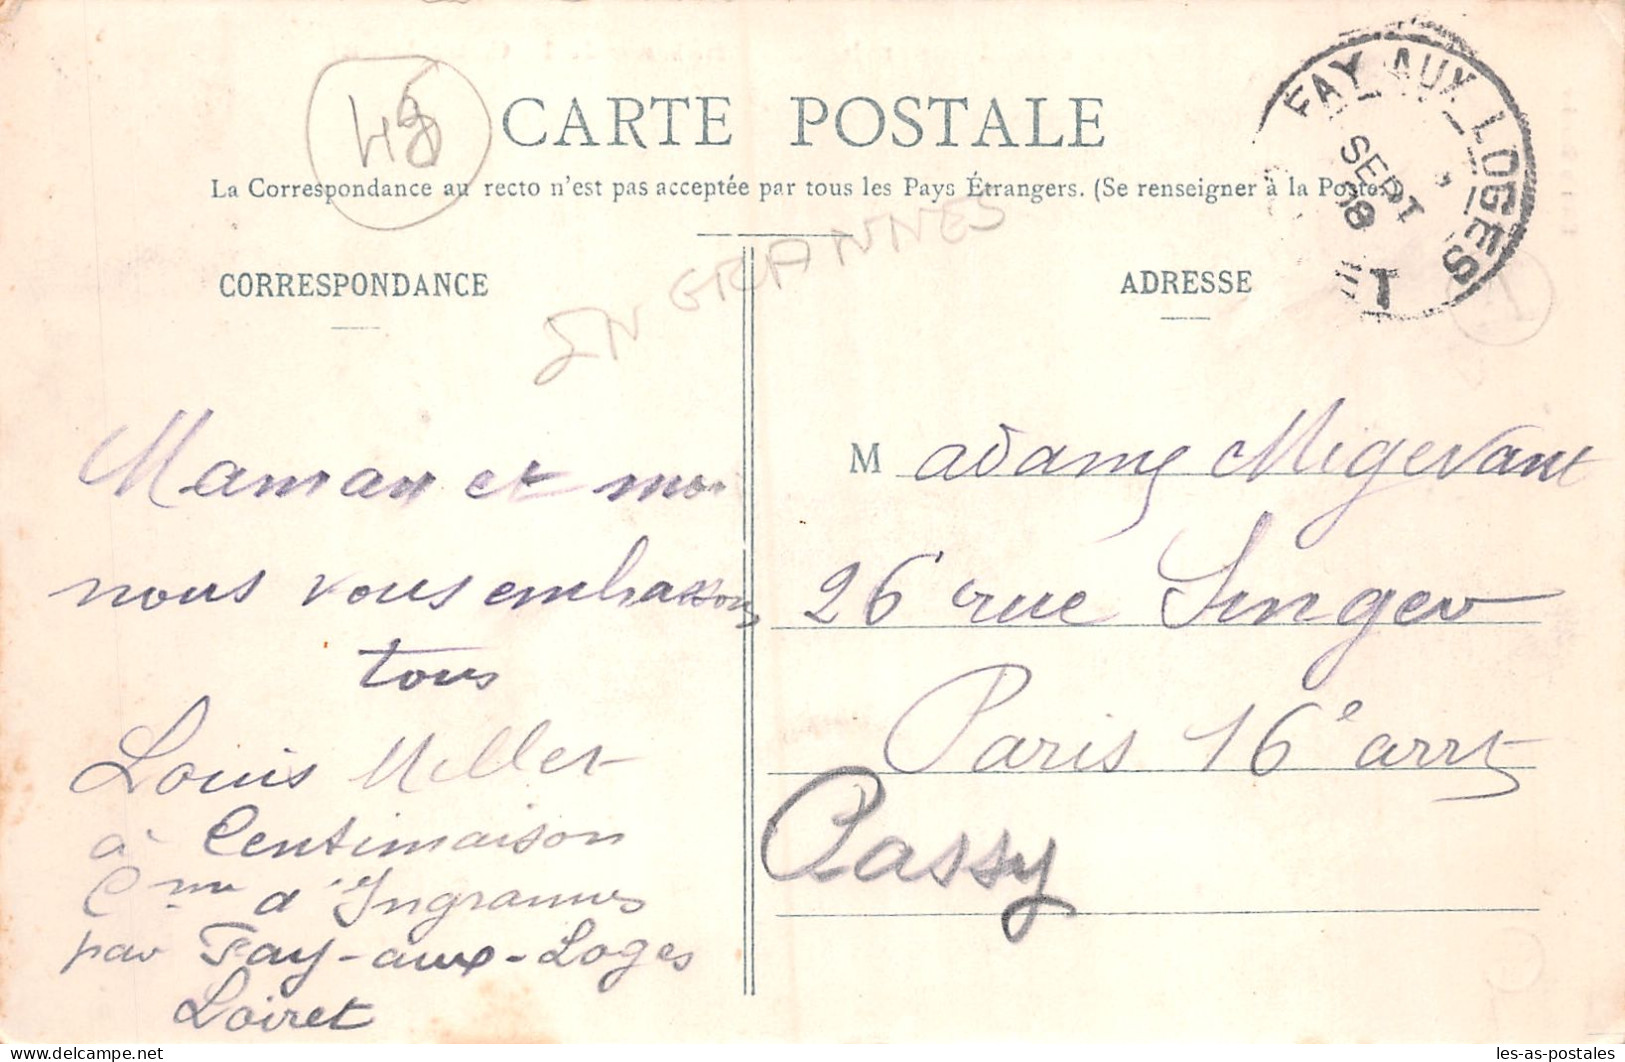 48
CARTE POSTALE
La Correspondance au recto n'est pas acceptée par tous les Pays Étrangers. (Se renseigner à la Poste)
FAY AUX LOGES
SEPT
08
ET
INGRANNES
CORRESPONDANCE
ADRESSE
Maman et moi
nous vous embrassons
tous
Louis Millet
à Centimaison
Cne d'Ingrannes
par Fay-aux-Loges
Loiret
Madame Migevant
26 rue Singer
Paris 16e arrt
Passy
les-as-postales
delcampe.net